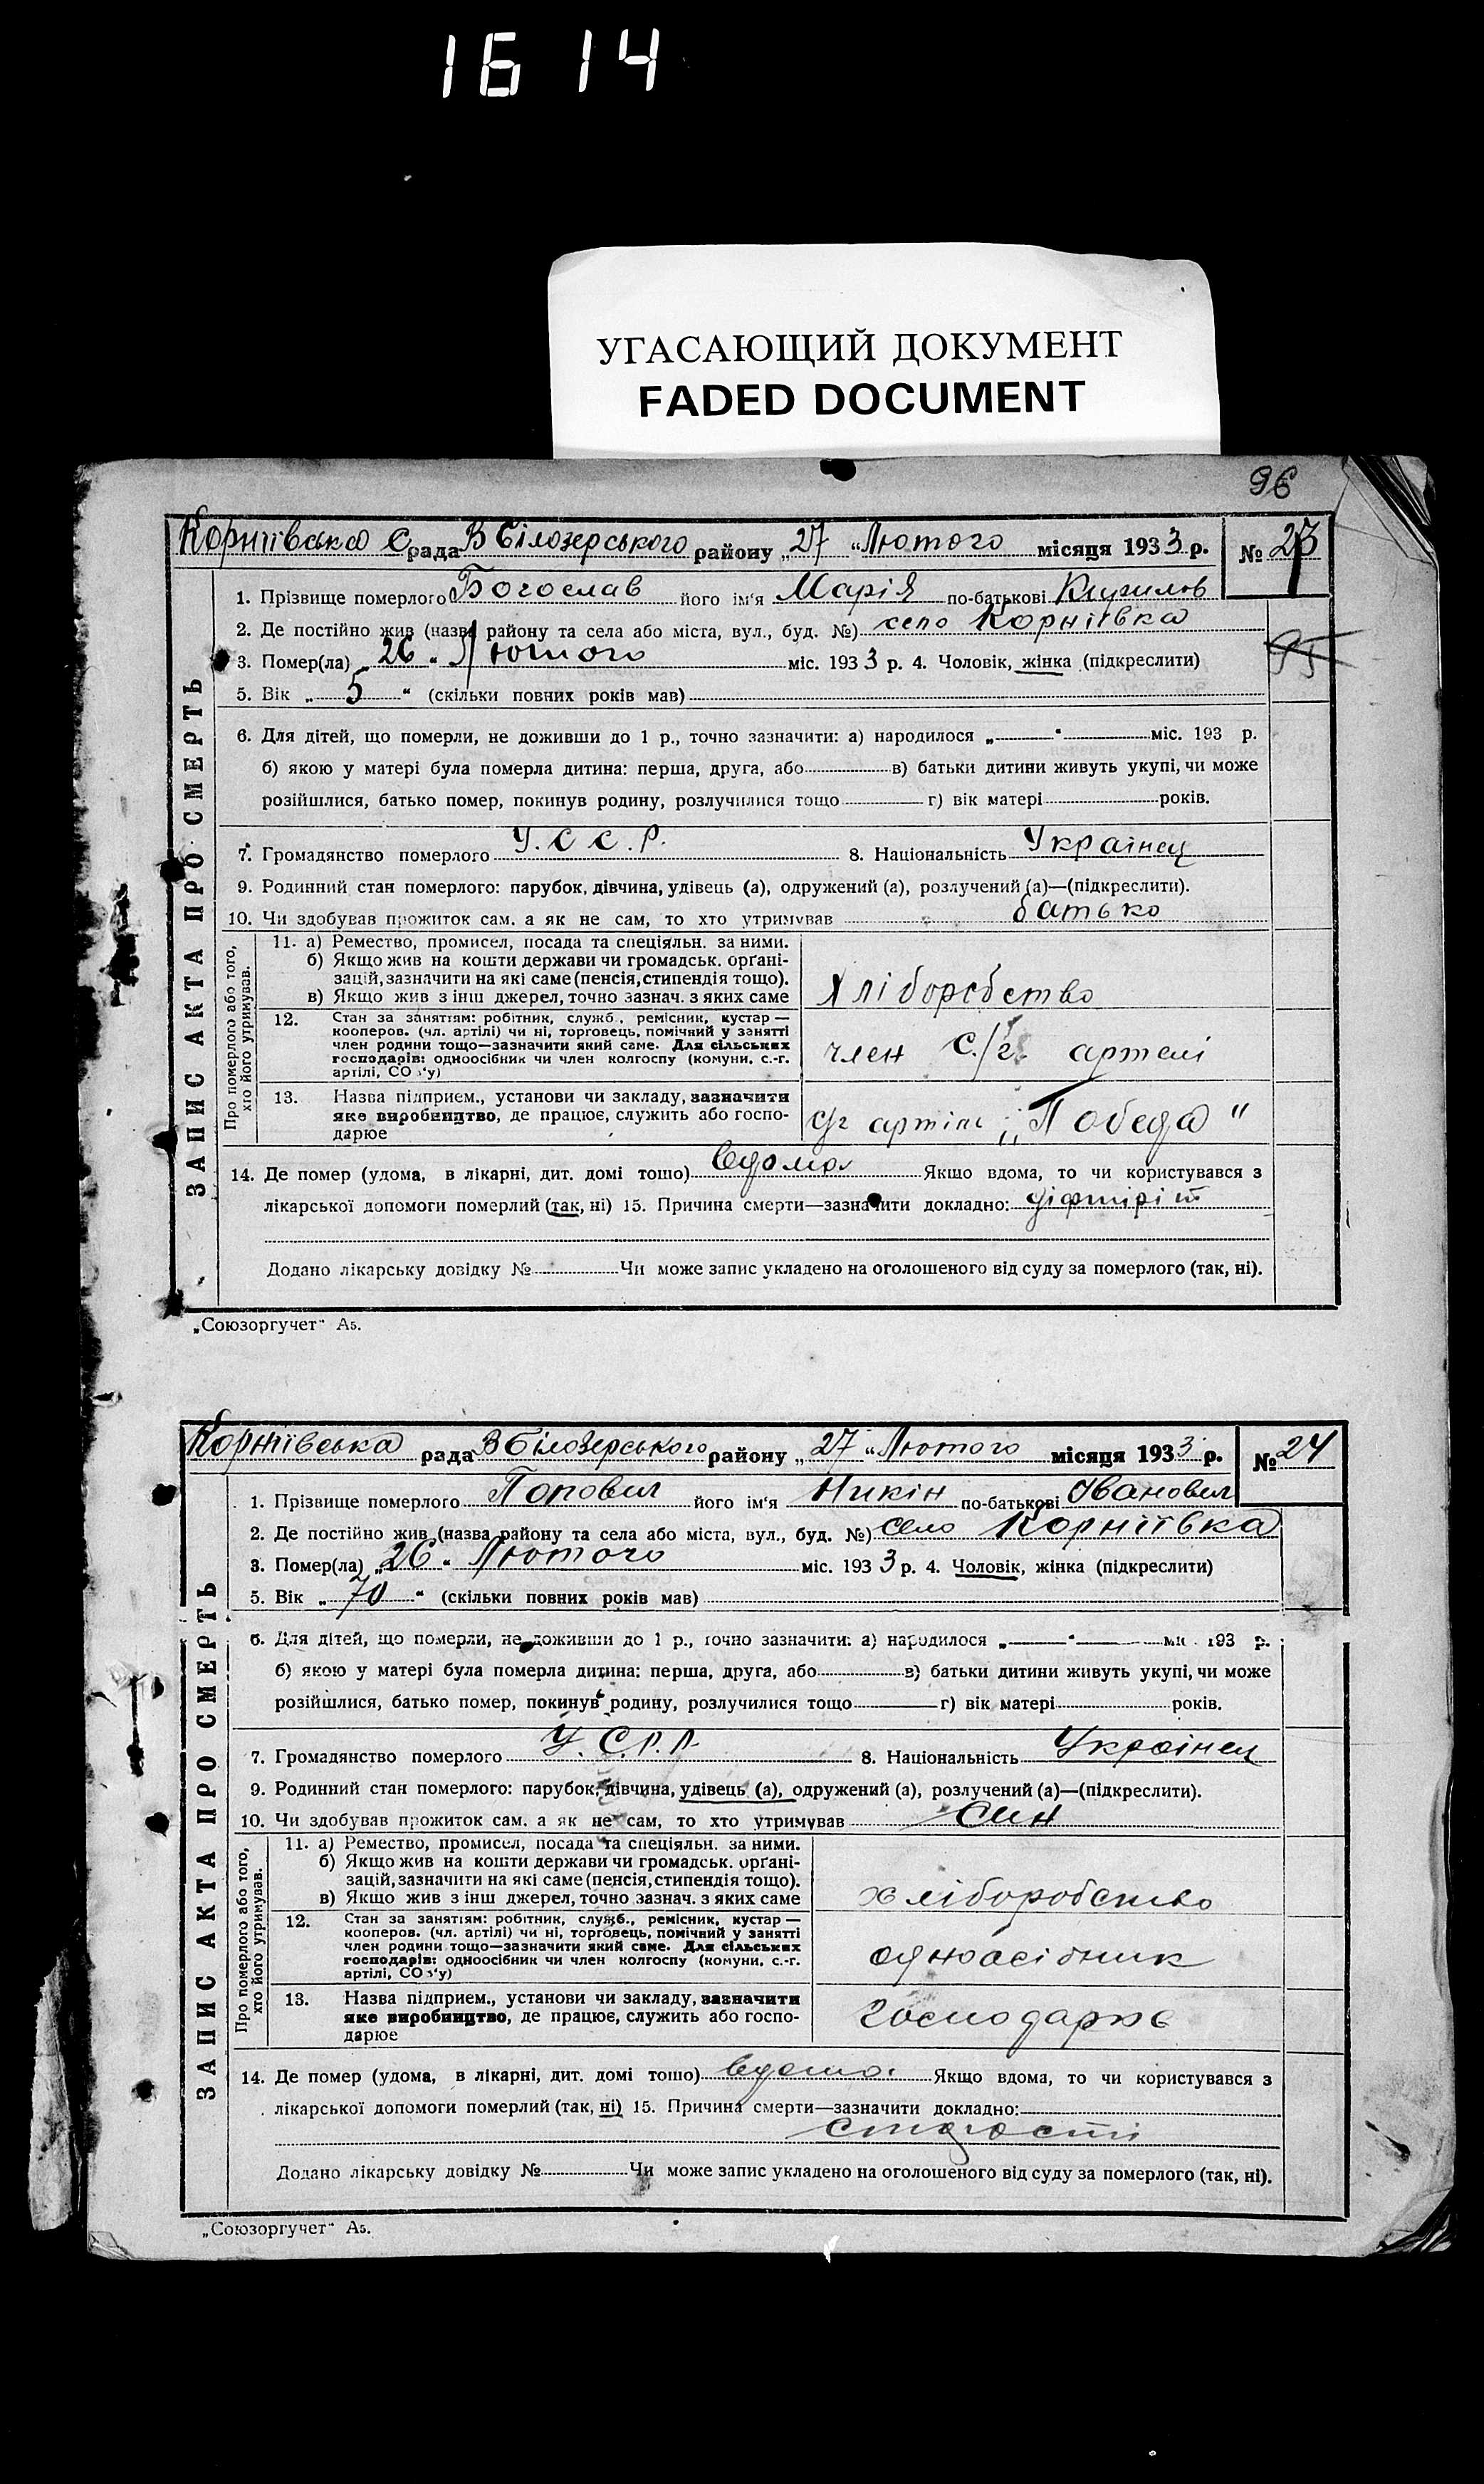 16 14
УГАСАЮЩИЙ ДОКУМЕНТ
FADED DOCUMENT
96
Корніївська с рада В Білозерського району „27“ Лютого місяця 1933 р. № 23
ЗАПИС АКТА ПРО СМЕРТЬ
1. Прізвище померлого Богослав його ім'я Марія по-батькові Кирилов
2. Де постійно жив (назва району та села або міста, вул., буд. №) село Корніївка
95
3. Помер(ла) „26“ Лютого міс. 1933 р. 4. Чоловік, жінка (підкреслити)
5. Вік „5“ (скільки повних років мав)
6. Для дітей, що померли, не доживши до 1 р., точно зазначити: а) народилося „ “ міс. 193 р.
б) якою у матері була померла дитина: перша, друга, або в) батьки дитини живуть укупі, чи може
розійшлися, батько помер, покинув родину, розлучилися тощо г) вік матері років.
7. Громадянство померлого У. С С. Р. 8. Національність Українец
9. Родинний стан померлого: парубок, дівчина, удівець (а), одружений (а), розлучений (а)—(підкреслити).
10. Чи здобував прожиток сам. а як не сам, то хто утримував батько
Про померлого або того, хто його утримував.
11. а) Ремество, промисел, посада та спеціяльн. за ними.
б) Якщо жив на кошти держави чи громадськ. орґані-
зацій, зазначити на які саме (пенсія, стипендія тощо).
в) Якщо жив з інш джерел, точно зазнач. з яких саме
Хліборобство
12. Стан за занятіям: робітник, служб., ремісник, кустар—
кооперов. (чл. артілі) чи ні, торговець, помічний у занятті
член родини тощо—зазначити який саме. Для сільських
господарів: одноосібник чи член колгоспу (комуни, с.-г.
артілі, СО у)
член с./г. артелі
13. Назва підприєм., установи чи закладу, зазначити
яке виробництво, де працює, служить або госпо-
дарює
артіль „Победа“
14. Де помер (удома, в лікарні, дит. домі тощо) вдома Якщо вдома, то чи користувався з
лікарської допомоги померлий (так, ні) 15. Причина смерти—зазначити докладно: діфтіріт
Додано лікарську довідку № Чи може запис укладено на оголошеного від суду за померлого (так, ні).
„Союзоргучет“ А5.
Корніївська рада В Білозерського району „27“ Лютого місяця 1933 р. № 24
ЗАПИС АКТА ПРО СМЕРТЬ
1. Прізвище померлого Попович його ім'я Никін по-батькові Іванович
2. Де постійно жив (назва району та села або міста, вул., буд. №) село Корніївка
3. Помер(ла) „26“ Лютого міс. 1933 р. 4. Чоловік, жінка (підкреслити)
5. Вік „70“ (скільки повних років мав)
6. Для дітей, що померли, не доживши до 1 р., точно зазначити: а) народилося „ “ міс. 193 р.
б) якою у матері була померла дитина: перша, друга, або в) батьки дитини живуть укупі, чи може
розійшлися, батько помер, покинув родину, розлучилися тощо г) вік матері років.
7. Громадянство померлого У. С. Р. Р. 8. Національність Українец
9. Родинний стан померлого: парубок, дівчина, удівець (а), одружений (а), розлучений (а)—(підкреслити).
10. Чи здобував прожиток сам. а як не сам, то хто утримував син
Про померлого або того, хто його утримував.
11. а) Ремество, промисел, посада та спеціяльн. за ними.
б) Якщо жив на кошти держави чи громадськ. орґані-
зацій, зазначити на які саме (пенсія, стипендія тощо).
в) Якщо жив з інш джерел, точно зазнач. з яких саме
хліборобство
12. Стан за занятіям: робітник, служб., ремісник, кустар—
кооперов. (чл. артілі) чи ні, торговець, помічний у занятті
член родини тощо—зазначити який саме. Для сільських
господарів: одноосібник чи член колгоспу (комуни, с.-г.
артілі, СО у)
одноасібник
13. Назва підприєм., установи чи закладу, зазначити
яке виробництво, де працює, служить або госпо-
дарює
Господарює
14. Де помер (удома, в лікарні, дит. домі тощо) вдома Якщо вдома, то чи користувався з
лікарської допомоги померлий (так, ні) 15. Причина смерти—зазначити докладно:
старості
Додано лікарську довідку № Чи може запис укладено на оголошеного від суду за померлого (так, ні).
„Союзоргучет“ А5.